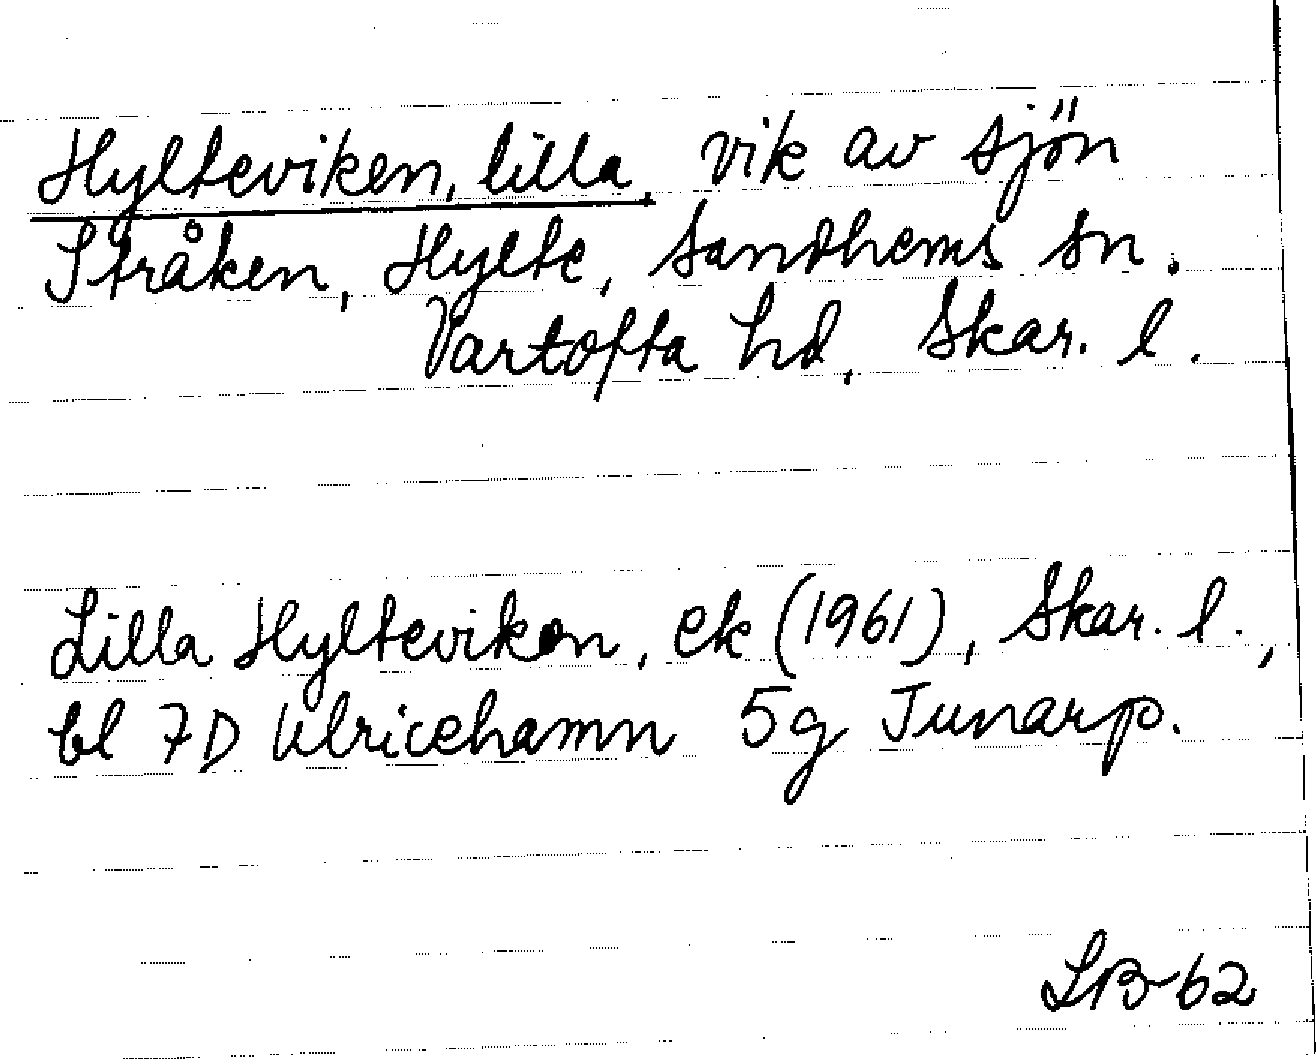 Hylteviken, lilla, vik av sjön
Stråken, Hylte, Sandhems sn.
Vartofta hd, Skar. l.
Lilla Hylteviken, ek (1961), Skar. l.,
bl 7D Ulricehamn 5g Junarp.
LB-62